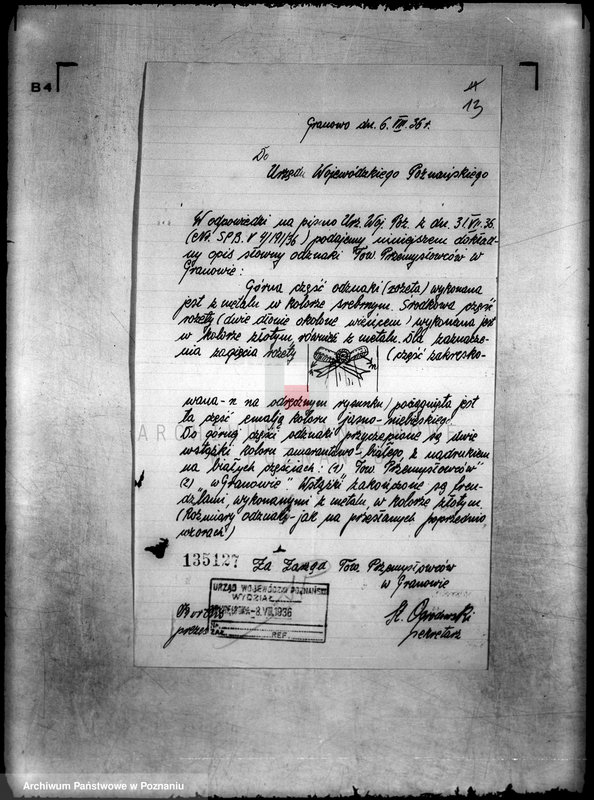 B4
11
13
Granowo dn. 6. VIII. 36 r.
Do
Urzędu Wojewódzkiego Poznańskiego
W odpowiedzi na pismo Urz. Woj. Poz. z dn. 31 VII. 36.
(Nr. S.P.B. V 4/191/36) podajemy niniejszem dokład-
ny opis słowny odznaki Tow. Przemysłowców w
Granowie:
Górna część odznaki (rozeta) wykonana
jest z metalu w kolorze srebrnym. Środkowa część
rozety (dwie dłonie okolone wieńcem) wykonana jest
w kolorze złotym, również z metalu. Dla zaznacze-
nia zagięcia rozety (część zakresko-
wana - n na odręcznym rysunku) pociągnięta jest
ta część emalją koloru jasno-niebieskiego.
Do górnej części odznaki przyczepione są dwie
wstążki koloru amarantowo-białego, z nadrukiem
na białych częściach: (1) "Tow. Przemysłowców"
(2) "w Granowie". Wstążki zakończone są fren-
dzlami, wykonanymi z metalu, w kolorze złotym.
(Rozmiary odznaki - jak na przesłanych poprzednio
wzorach.)
135127 Za Zarząd Tow. Przemysłowców
w Granowie
URZĄD WOJEWÓDZKI POZNAŃSKI
WYDZIAŁ
-8.VIII.1936
Nr.
ZAŁ. REF.
prezes
sekretarz
Archiwum Państwowe w Poznaniu